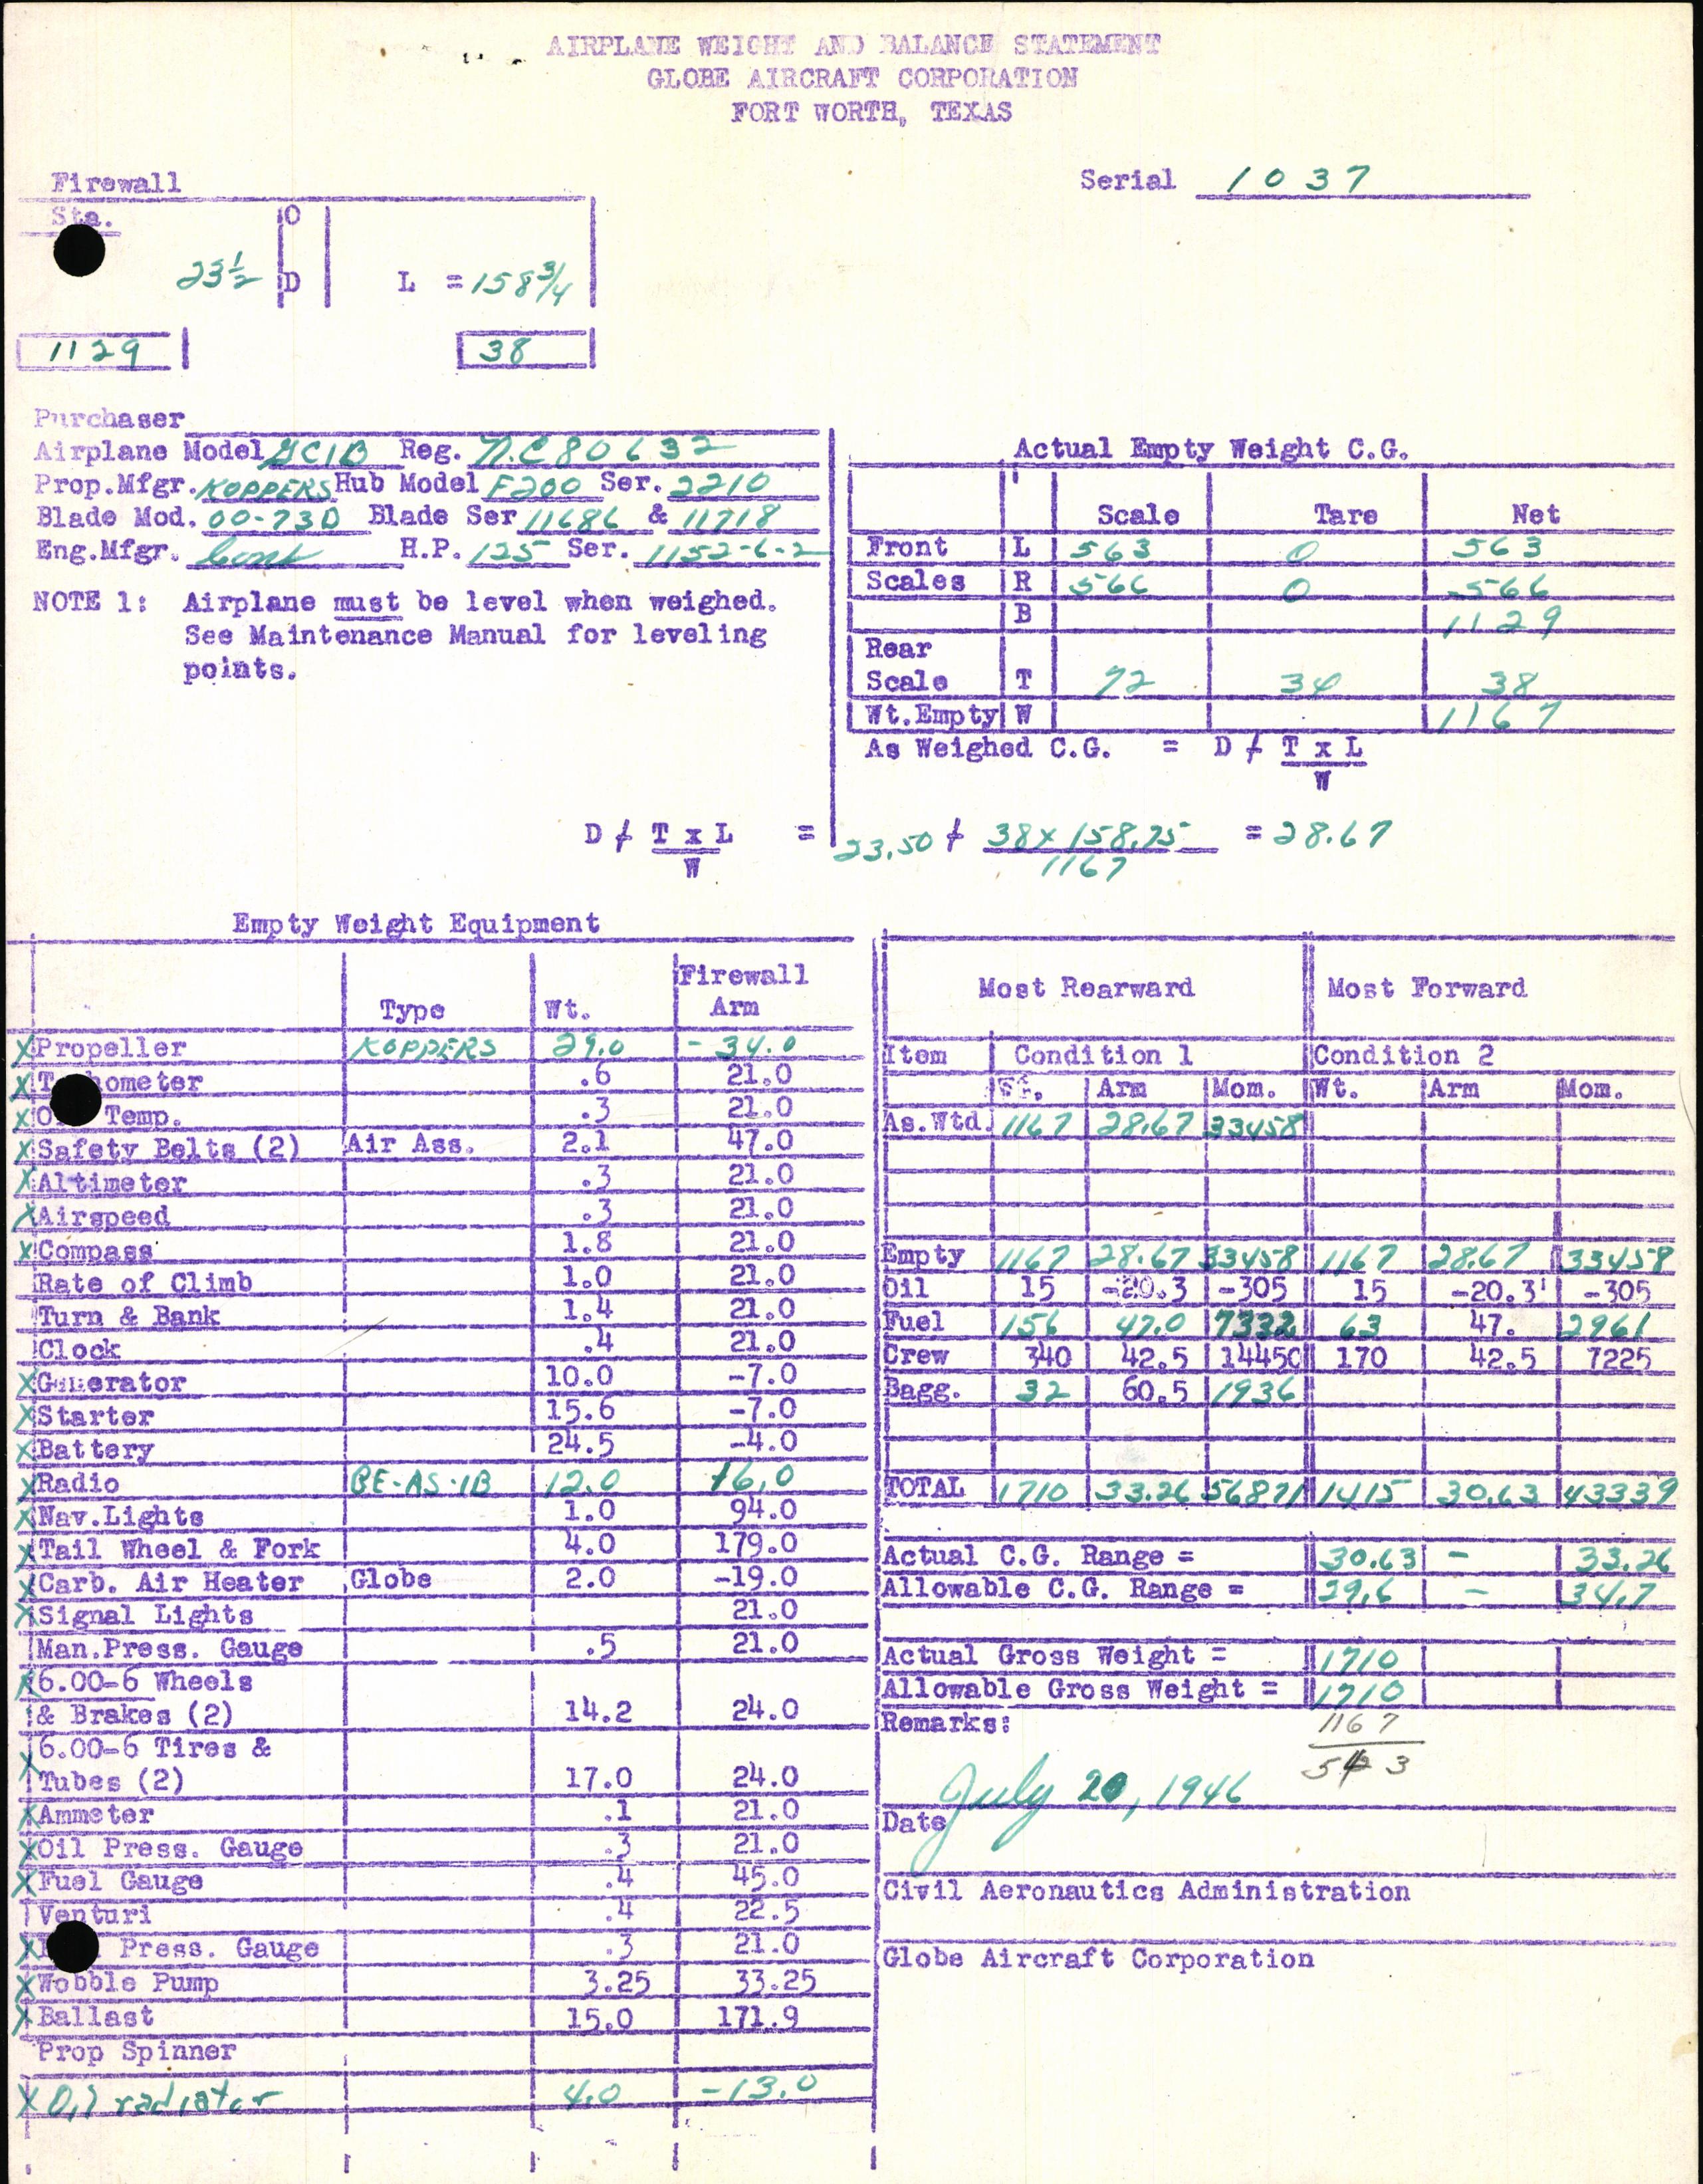 AIRPLANE WEIGHT AND BALANCE STATEMENT
GLOBE AIRCRAFT CORPORATION
FORT WORTH, TEXAS
Firewall
Serial 1037
Sta.
O
23 1/2 D L = 158 3/4
1129 38
Purchaser
Airplane Model GC1B Reg. N.C 80632
Prop.Mfgr. KOPPERS Hub Model F200 Ser. 2210
Blade Mod. 00-73D Blade Ser 11686 & 11718
Eng.Mfgr. Cont H.P. 125 Ser. 1152-6-2
NOTE 1: Airplane must be level when weighed.
See Maintenance Manual for leveling
points.
Actual Empty Weight C.G.
Scale Tare Net
Front L 563 0 563
Scales R 566 0 566
B 1129
Rear
Scale T 72 34 38
Wt.Empty W 1167
As Weighed C.G. = D + T x L
W
D + T x L = 23.50 + 38 x 158.75 = 28.67
W 1167
Empty Weight Equipment
Type Wt. Firewall Arm
X Propeller KOPPERS 29.0 - 34.0
X T hometer .6 21.0
X O Temp. .3 21.0
X Safety Belts (2) Air Ass. 2.1 47.0
X Altimeter .3 21.0
X Airspeed .3 21.0
X Compass 1.8 21.0
Rate of Climb 1.0 21.0
Turn & Bank 1.4 21.0
Clock .4 21.0
X Generator 10.0 -7.0
X Starter 15.6 -7.0
X Battery 24.5 -4.0
X Radio BE-AS-1B 12.0 16.0
X Nav.Lights 1.0 94.0
X Tail Wheel & Fork 4.0 179.0
X Carb. Air Heater Globe 2.0 -19.0
X Signal Lights 21.0
Man.Press. Gauge .5 21.0
X 6.00-6 Wheels
& Brakes (2) 14.2 24.0
X 6.00-6 Tires &
Tubes (2) 17.0 24.0
X Ammeter .1 21.0
X Oil Press. Gauge .3 21.0
X Fuel Gauge .4 45.0
Venturi .4 22.5
X Press. Gauge .3 21.0
X Wobble Pump 3.25 33.25
X Ballast 15.0 171.9
Prop Spinner
X Oil radiator 4.0 -13.0
Most Rearward Most Forward
Item Condition 1 Condition 2
Wt. Arm Mom. Wt. Arm Mom.
As.Wtd. 1167 28.67 33458
Empty 1167 28.67 33458 1167 28.67 33458
Oil 15 -20.3 -305 15 -20.3 -305
Fuel 156 47.0 7332 63 47. 2961
Crew 340 42.5 14450 170 42.5 7225
Bagg. 32 60.5 1936
TOTAL 1710 33.26 56871 1415 30.63 43339
Actual C.G. Range = 30.63 - 33.26
Allowable C.G. Range = 29.6 - 34.7
Actual Gross Weight = 1710
Allowable Gross Weight = 1710
Remarks: 1167
543
July 20, 1946
Date
Civil Aeronautics Administration
Globe Aircraft Corporation